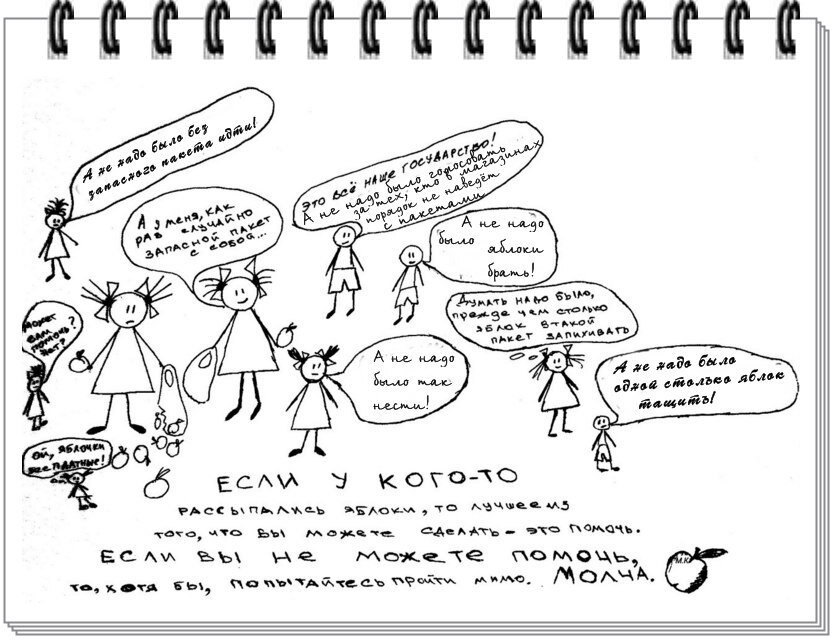 А не надо было без
запасного пакета идти!
А у меня, как
раз случайно
запасной пакет
с собой...
ЭТО ВСЁ НАШЕ ГОСУДАРСТВО!
А не надо было голосовать
за тех, кто в магазинах
порядок не наведёт
с пакетами
А не надо
было яблоки
брать!
Может
вам
помочь?
Нет?
Думать надо было,
прежде чем столько
яблок в такой
пакет запихивать
А не надо
было так
нести!
А не надо было
одной столько яблок
тащить!
Ой, яблочки
бесплатные!
ЕСЛИ У КОГО-ТО
РАССЫПАЛИСЬ ЯБЛОКИ, ТО ЛУЧШЕЕ ИЗ
ТОГО, ЧТО ВЫ МОЖЕТЕ СДЕЛАТЬ - ЭТО ПОМОЧЬ.
ЕСЛИ ВЫ НЕ МОЖЕТЕ ПОМОЧЬ,
ТО, ХОТЯ БЫ, ПОПЫТАЙТЕСЬ ПРОЙТИ МИМО. МОЛЧА.
М.К.